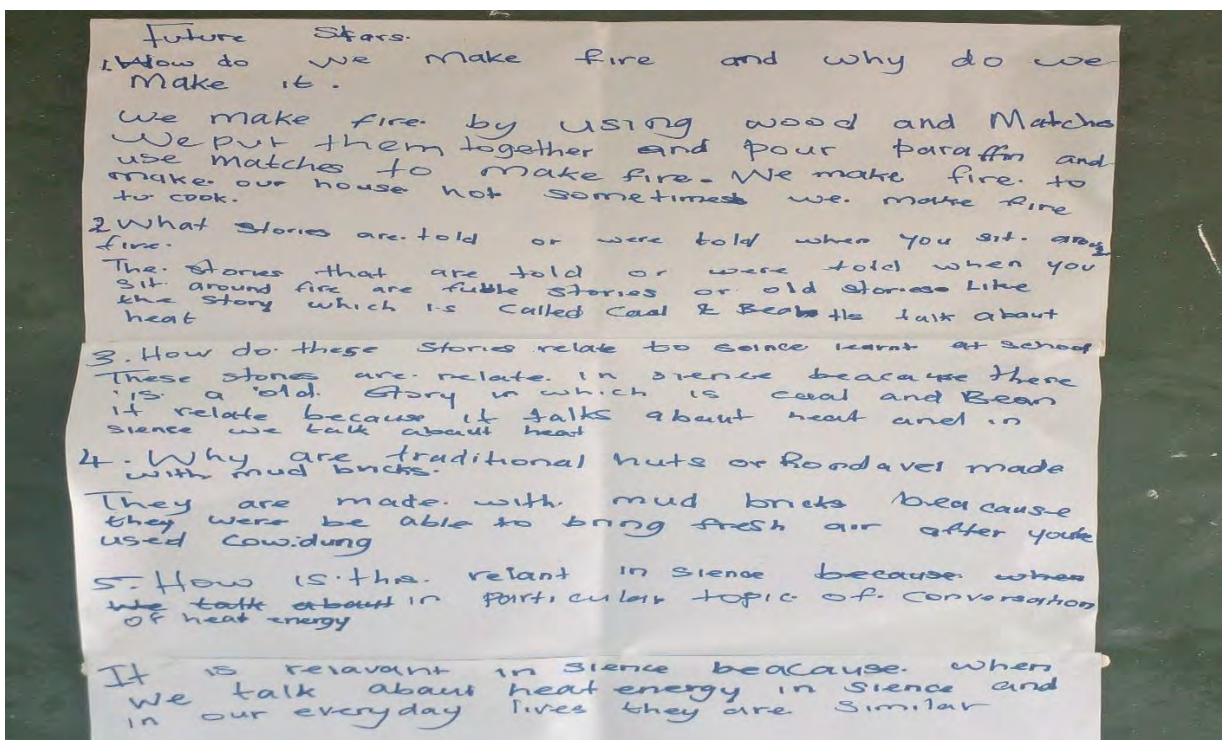 Future Stars.
1. How do we make fire and why do we
make it.
We make fire by using wood and Matches
We put them together and pour paraffin and
use matches to make fire. We make fire to
make our house hot sometimes we make fire
to cook.
2 What stories are told or were told when you sit around
fire.
The stories that are told or were told when you
sit around fire are fuble stories or old stories Like
the story which is called Coal & Bean the talk about
heat
3. How do these stories relate to scince learnt at school
These stories are relate in sience beacause there
is a old story in which is coal and Bean
it relate because it talks about heat and in
sience we talk about heat
4. Why are traditional huts or Rondavel made
with mud bricks.
They are made with mud bricks beacause
they were be able to bring fresh air after you
used cowdung
5. How is this relant in sience because when
we talk about in particular topic of conversation
of heat energy
It is relavant in sience beacause when
we talk about heat energy in sience and
in our everyday lives they are similar